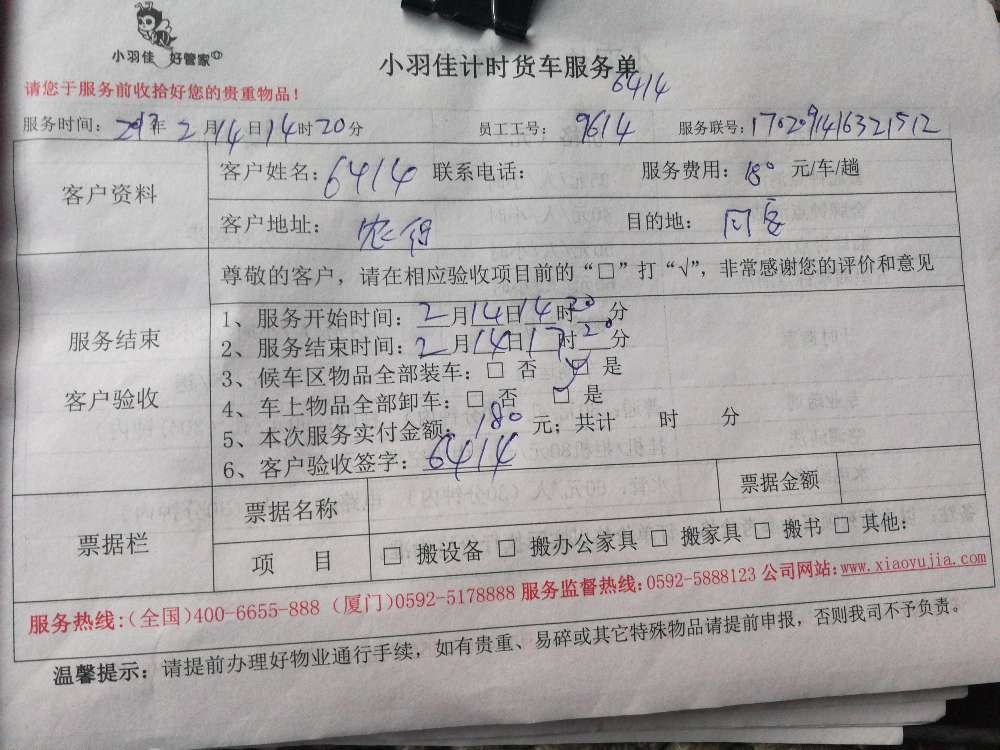 小羽佳 好管家
小羽佳计时货车服务单
6414
请您于服务前收拾好您的贵重物品！
服务时间：2017年2月14日14时20分 员工工号：9614 服务联号：1702091416321512
客户资料 客户姓名：6414 联系电话： 服务费用：180 元/车/趟
客户地址： 目的地： 同安
尊敬的客户，请在相应验收项目前的“□”打“√”，非常感谢您的评价和意见
服务结束
客户验收
1、服务开始时间：2月14日14时20分
2、服务结束时间：2月14日17时20分
3、候车区物品全部装车：□ 否 □ 是
4、车上物品全部卸车：□ 否 □ 是
5、本次服务实付金额：180 元；共计 时 分
6、客户验收签字：6414
票据栏 票据名称 票据金额
项 目 □ 搬设备 □ 搬办公家具 □ 搬家具 □ 搬书 □ 其他：
服务热线：(全国)400-6655-888 (厦门)0592-5178888 服务监督热线：0592-5888123 公司网站：www.xiaoyujia.com
温馨提示：请提前办理好物业通行手续，如有贵重、易碎或其它特殊物品请提前申报，否则我司不予负责。